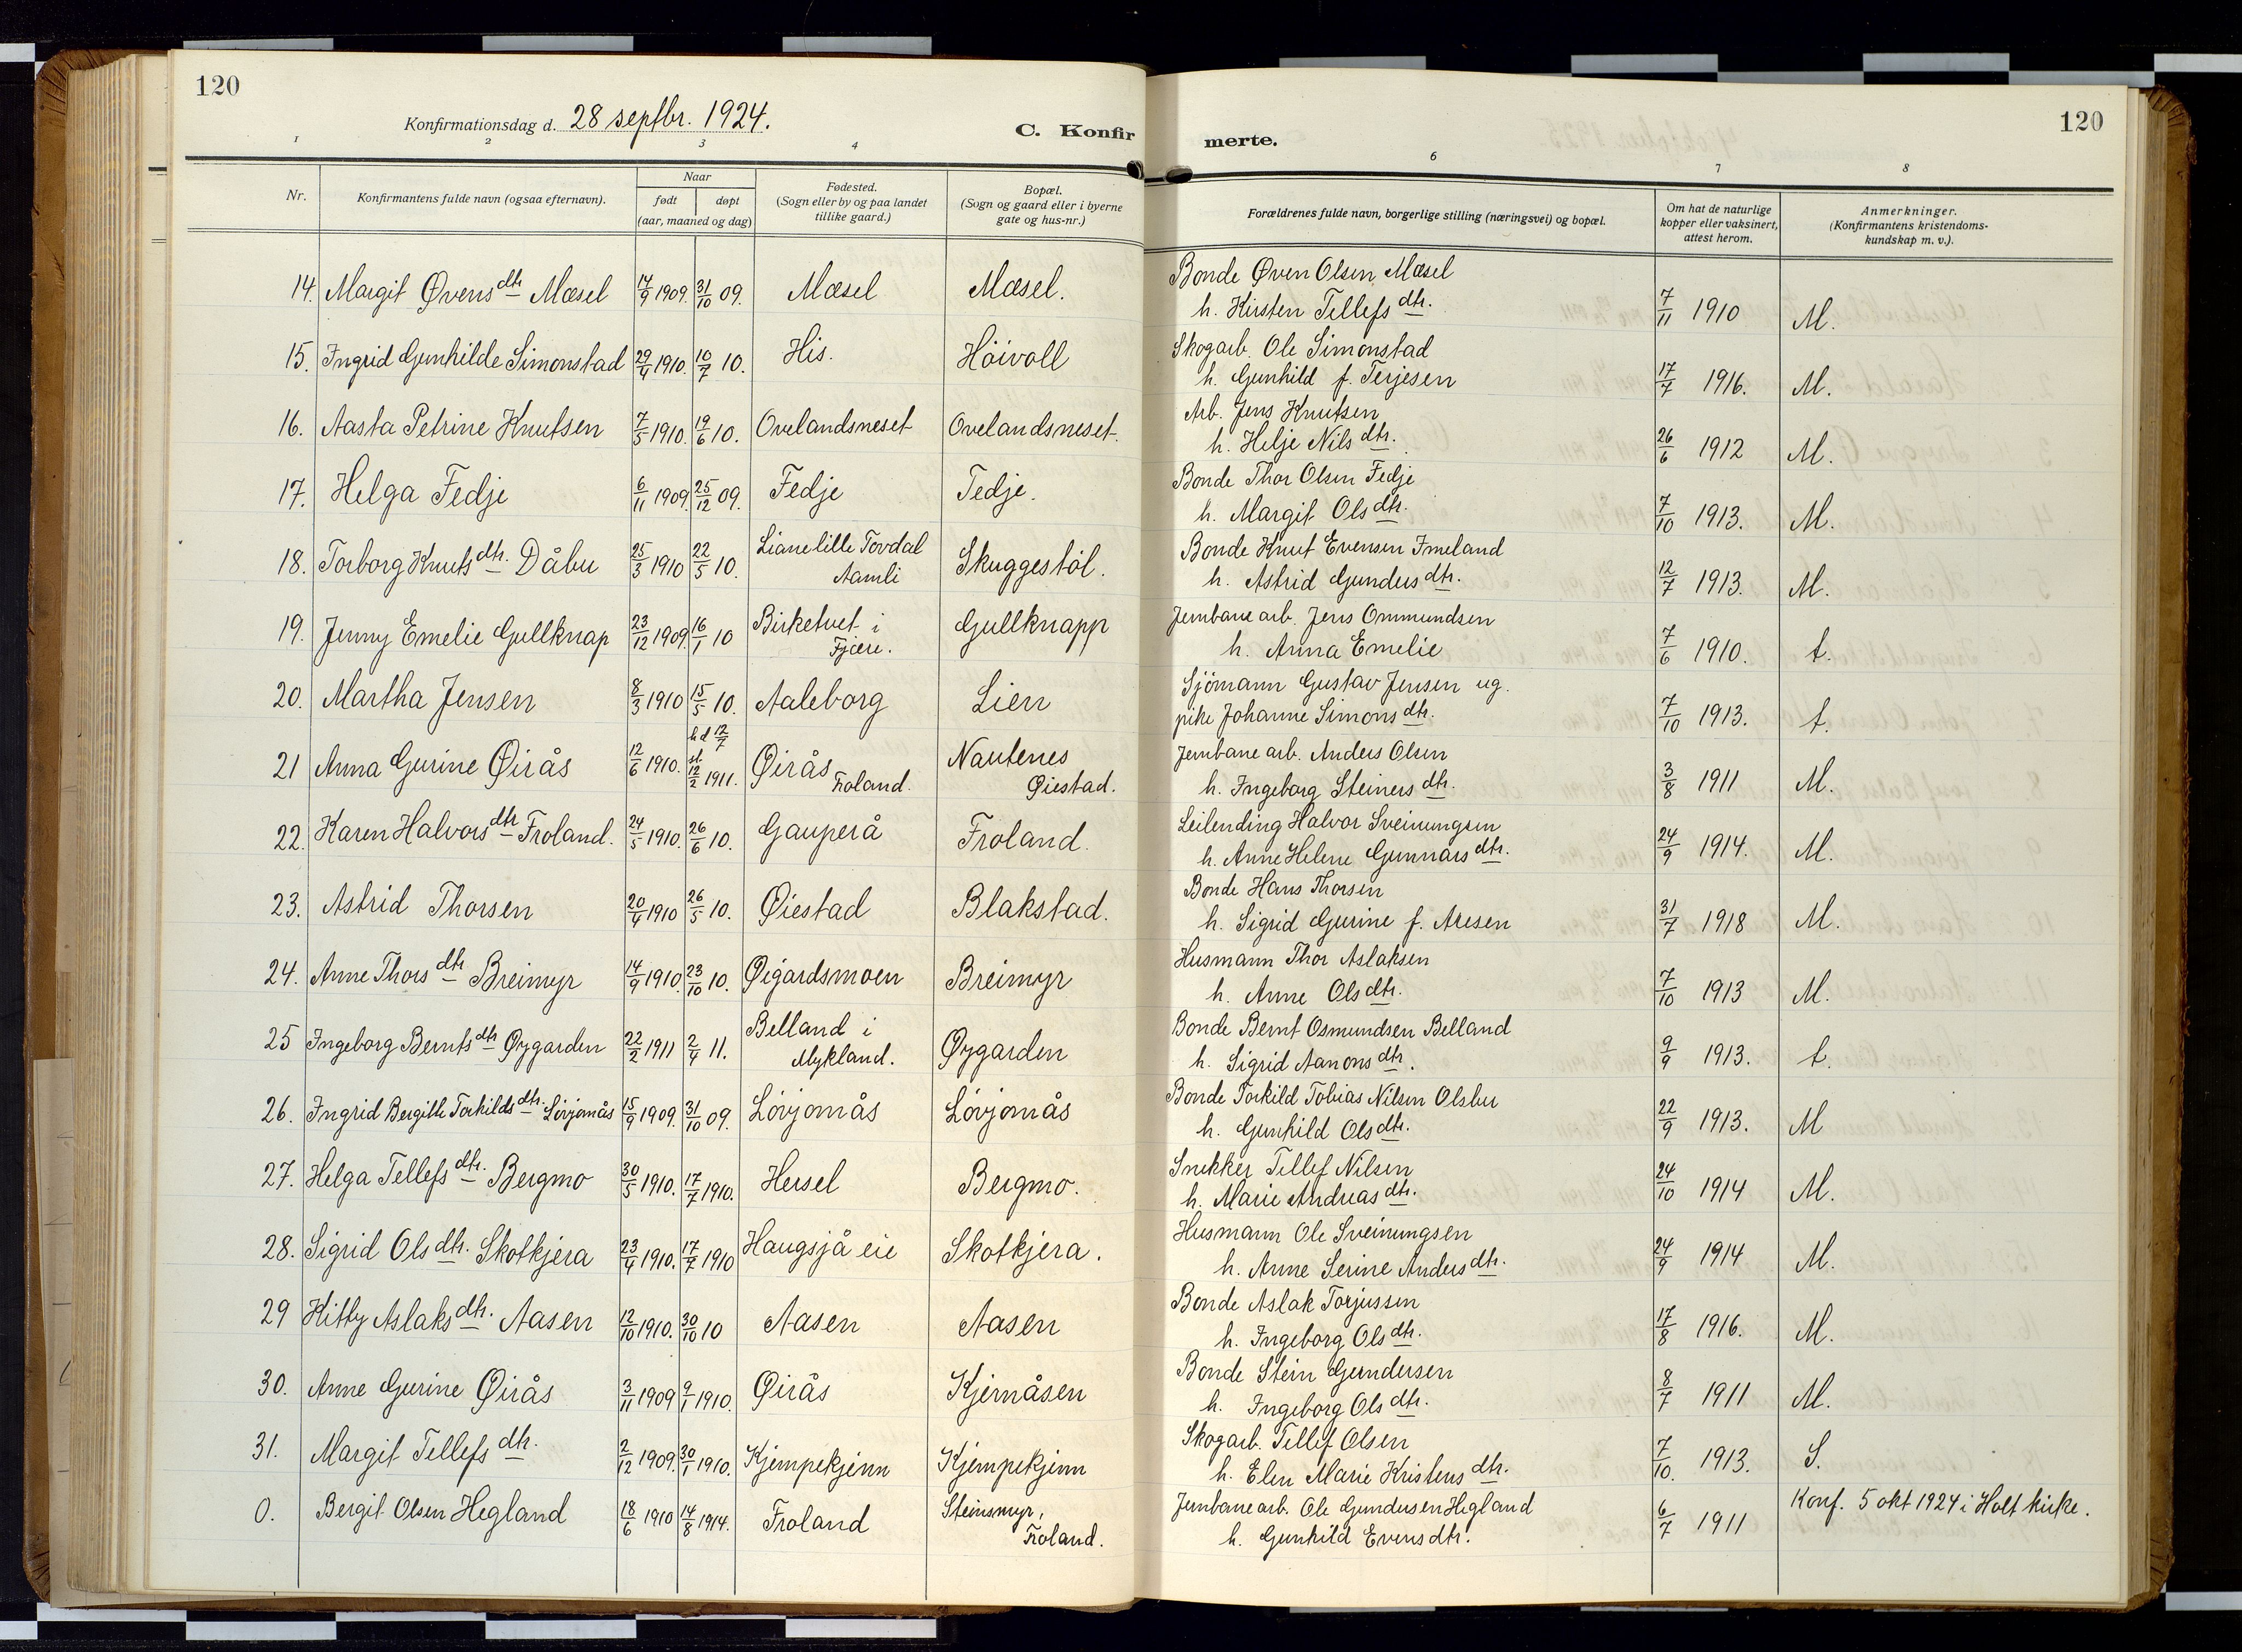 120
Konfirmationsdag d. 28 septbr. 1924.
C. Konfirmerte.
120
1 2 3 4 6 7 8
Nr.
Konfirmantens fulde navn (ogsaa efternavn).
Naar
født døpt
(aar, maaned og dag)
Fødested.
(Sogn eller by og paa landet
tillike gaard.)
Bopæl.
(Sogn og gaard eller i byerne
gate og hus-nr.)
Forældrenes fulde navn, borgerlige stilling (næringsvei) og bopæl.
Om hat de naturlige
kopper eller vaksinert,
attest herom.
Anmerkninger.
(Konfirmantens kristendoms-
kundskap m. v.).
14. Margit Øvens dtr Mæsel 14/9 1909. 31/10 09. Mæsel Mæsel. Bonde Øven Olsen Mæsel
h. Kirsten Tellefs dtr. 7/11 1910 M.
15. Ingrid Gunhilde Simonstad 29/4 1910. 10/7 10. His. Höivoll Skogarb. Ole Simonstad
h. Gunhild f. Terjesen 17/7 1916. M.
16. Aasta Petrine Knutsen 7/5 1910. 19/6 10. Ovelandsneset Ovelandsneset. Arb. Jens Knutsen
h. Helje Nils dtr. 26/6 1912 M.
17. Helga Fedje 6/11 1909. 25/12 09. Fedje Fedje. Bonde Thor Olsen Fedje
h. Margit Ols dtr. 7/10 1913. M.
18. Torborg Knuts dtr. Dåbu 25/3 1910 22/5 10. Lianelille Tovdal
Aamli Skuggestöl. Bonde Knut Evensen Imeland
h. Astrid Gunders dtr. 12/7 1913. M.
19. Jenny Emelie Gullknap 23/12 1909. 16/1 10 Birketvet i
Fjære. Gullknapp Jernbanearb. Jens Ommundsen
h. Anna Emelie 7/6 1910. t.
20. Martha Jensen 8/3 1910 15/5 10. Aaleborg Lien Sjömann Gustav Jensen ug.
pike Johanne Simons dtr. 7/10 1913. t.
21 Anna Gurine Øirås 12/6 1910. hd 17/7
st 12/2 1911. Øirås
Froland. Nautenes
Øiestad. Jernbanearb. Anders Olsen
h. Ingeborg Steiners dtr. 3/8 1911 M.
22. Karen Halvors dtr Froland. 24/5 1910. 26/6 10. Gauperå Froland. Leilending Halvor Sveinungsen
h. Anne Helene Gunnars dtr. 24/9 1914. M.
23. Astrid Thorsen 20/4 1910 26/5 10. Øiestad Blakstad. Bonde Hans Thorsen
h. Sigrid Gurine f. Aresen 31/7 1918 M.
24. Anne Thors dtr Breimyr 14/9 1910. 23/10 10. Øigardsmoen Breimyr Husmann Thor Aslaksen
h. Anne Ols dtr. 7/10 1913 M.
25 Ingeborg Bernts dtr Øygarden 22/2 1911 2/4 11. Belland i
Mykland. Øygarden Bonde Bernt Osmundsen Belland
h. Sigrid Aanons dtr. 9/9 1913. t.
26. Ingrid Bergitte Torkilds dtr. Lövjomås 15/9 1909. 31/10 09. Lövjomås Lövjomås Bonde Torkild Tobias Nilsen Olsbu
h. Gunhild Ols dtr. 22/9 1913. M
27. Helga Tellefs dtr. Bergmo 30/5 1910. 17/7 1910. Hersel Bergmo. Snekker Tellef Nilsen
h. Marie Andreas dtr. 24/10 1914 M.
28. Sigrid Ols dtr. Skotkjera 23/4 1910. 17/7 1910 Haugsjå eie Skotkjera. Husmann Ole Sveinungsen
h. Anne Serine Anders dtr. 24/9 1914 M.
29 Kitty Aslaks dtr. Aasen 12/10 1910. 30/10 10 Aasen Aasen Bonde Aslak Torjussen
h. Ingeborg Ols dtr. 17/8 1916. M.
30. Anne Gurine Øirås 3/11 1909 9/1 1910. Øirås Kjernåsen Bonde Stein Gundersen
h. Ingeborg Ols dtr. 8/7 1911 M.
31. Margit Tellefs dtr. 2/12 1909. 30/1 1910. Kjempekjenn Kjempekjenn Skogarb. Tellef Olsen
h. Elen Marie Kristens dtr. 7/10. 1913. S.
0. Bergit Olsen Hegland 18/6 1910 14/8 1914. Froland Steinsmyr,
Froland. Jernbanearb. Ole Gundersen Hegland
h. Gunhild Evens dtr. 6/7 1911 Konf. 5 okt 1924 i Holt kirke.